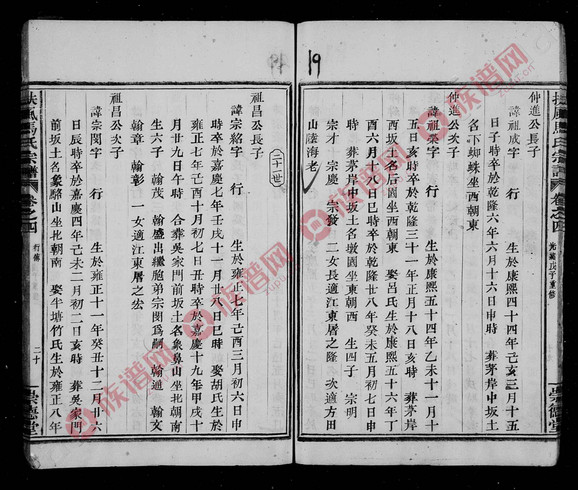 19
扶風馬氏宗譜
卷之四
光緒戊子重修
崇德堂
仲進公長子
諱祖成字 行 生於康熙四十四年乙亥三月十五
日子時卒於乾隆六年六月十六日申時 葬茅岸中坂土
名下蜘蛛坐西朝東
仲進公次子
諱祖榮字 行 生於康熙五十四年乙未十一月十
五日亥時卒於乾隆三十一年十一月十八日亥時 葬茅岸
西坂名后園坐西朝東 娶呂氏生於康熙五十六年丁
酉六月十八日巳時卒於乾隆廿八年癸未五月初七日
時 葬茅岸中坂土名墩園坐東朝西 生四子 宗明
宗才 宗慶 宗發 二女長適江東屠之隆 次適方田
山陸海老
祖昌公長子
二十世
諱宗紹字 行 生於雍正七年己酉三月初六日申
時卒於嘉慶七年壬戌十一月廿八日巳時 娶胡氏生於
雍正七年己酉十月初七日丑時卒於嘉慶十九年甲戌十
月廿九日時 合葬吳家門前坂土名象鼻山坐北朝南
生六子 翰茂 翰盛出繼胞弟宗閔爲嗣 翰通 翰文
翰章 翰彰 一女適江東屠之宏
祖昌公次子
諱宗閔字 行 生於雍正十一年癸丑十二月十六
日辰時卒於嘉慶四年己未二月初二日亥時 葬吳家門
前坂土名象駱山坐北朝南 娶牛塘竹氏生於雍正八年
扶風馬氏宗譜
卷之四
行傳
二十
崇德堂
族谱网
族谱网
族谱网